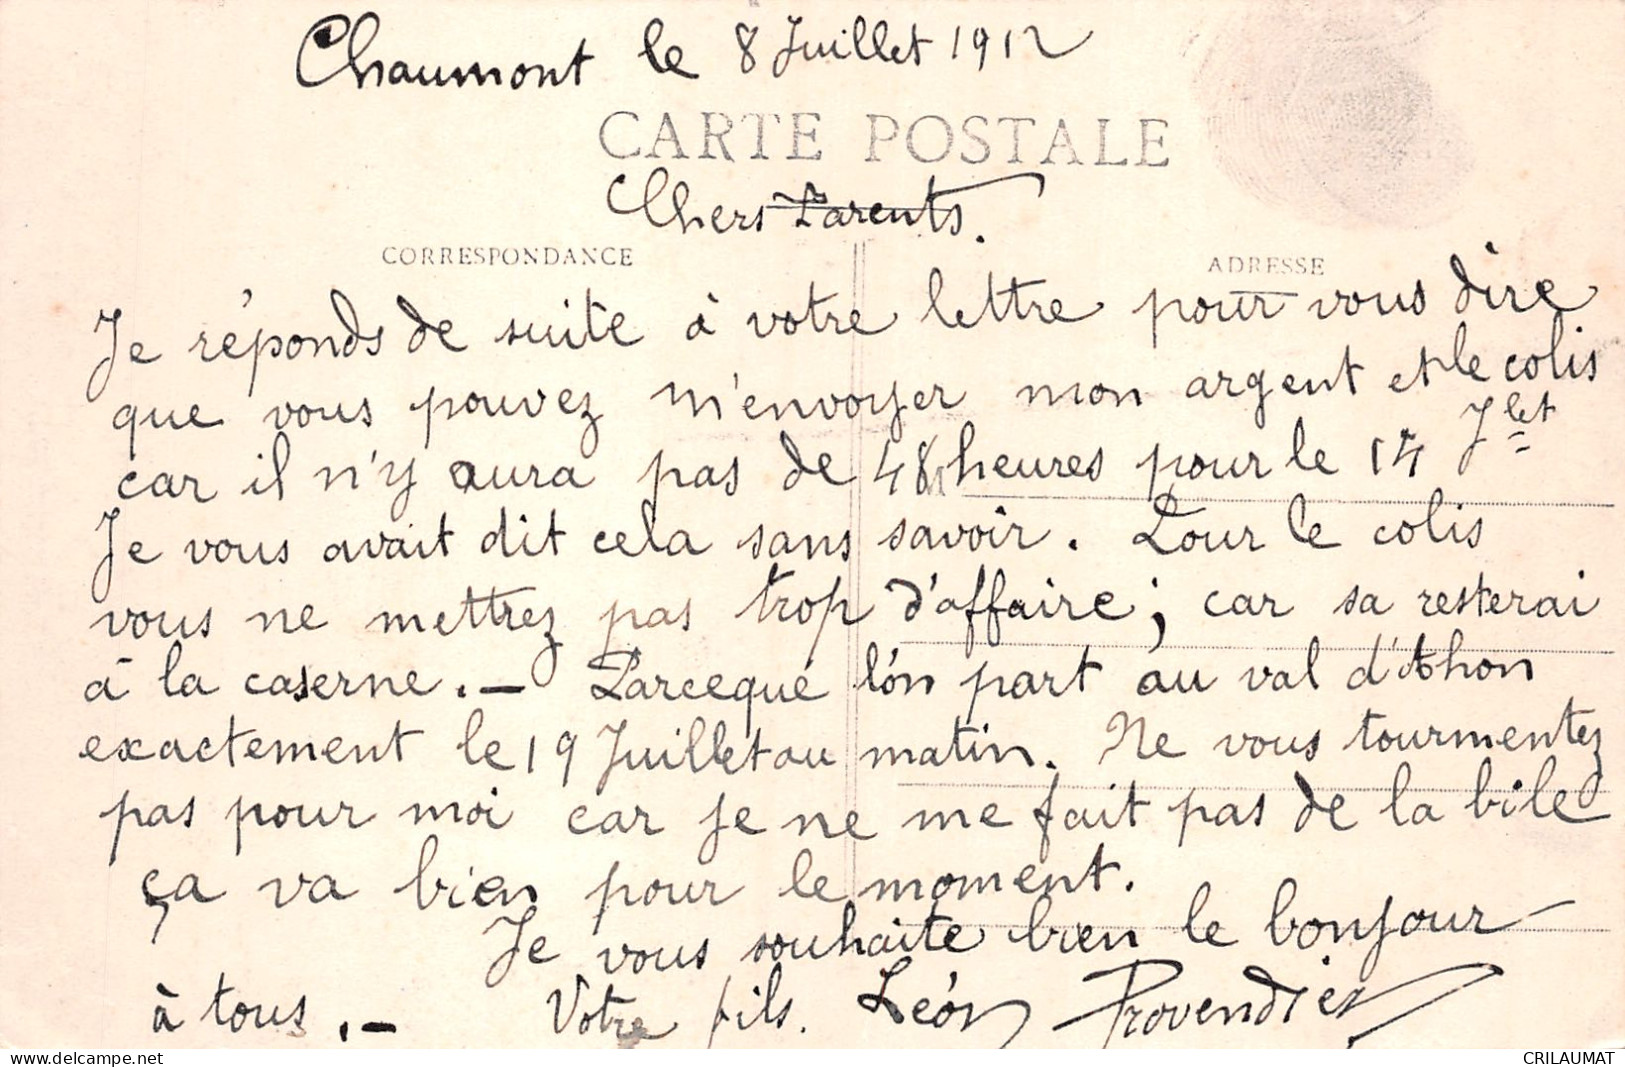 Chaumont le 8 Juillet 1912
CARTE POSTALE
Chers Parents.
CORRESPONDANCE
ADRESSE
Je réponds de suite à votre lettre pour vous dire
que vous pouvez m'envoyer mon argent et le colis
car il n'y aura pas de 48 heures pour le 14 Jlet
Je vous avait dit cela sans savoir. Pour le colis
vous ne mettrez pas trop d'affaire; car sa resterai
à la caserne. - Parceque l'on part au val d'Ahon
exactement le 19 Juillet au matin. Ne vous tourmentez
pas pour moi car je ne me fait pas de la bile
ça va bien pour le moment.
Je vous souhaite bien le bonjour
à tous. - Votre fils. Léon Provendier
delcampe.net
CRILAUMAT